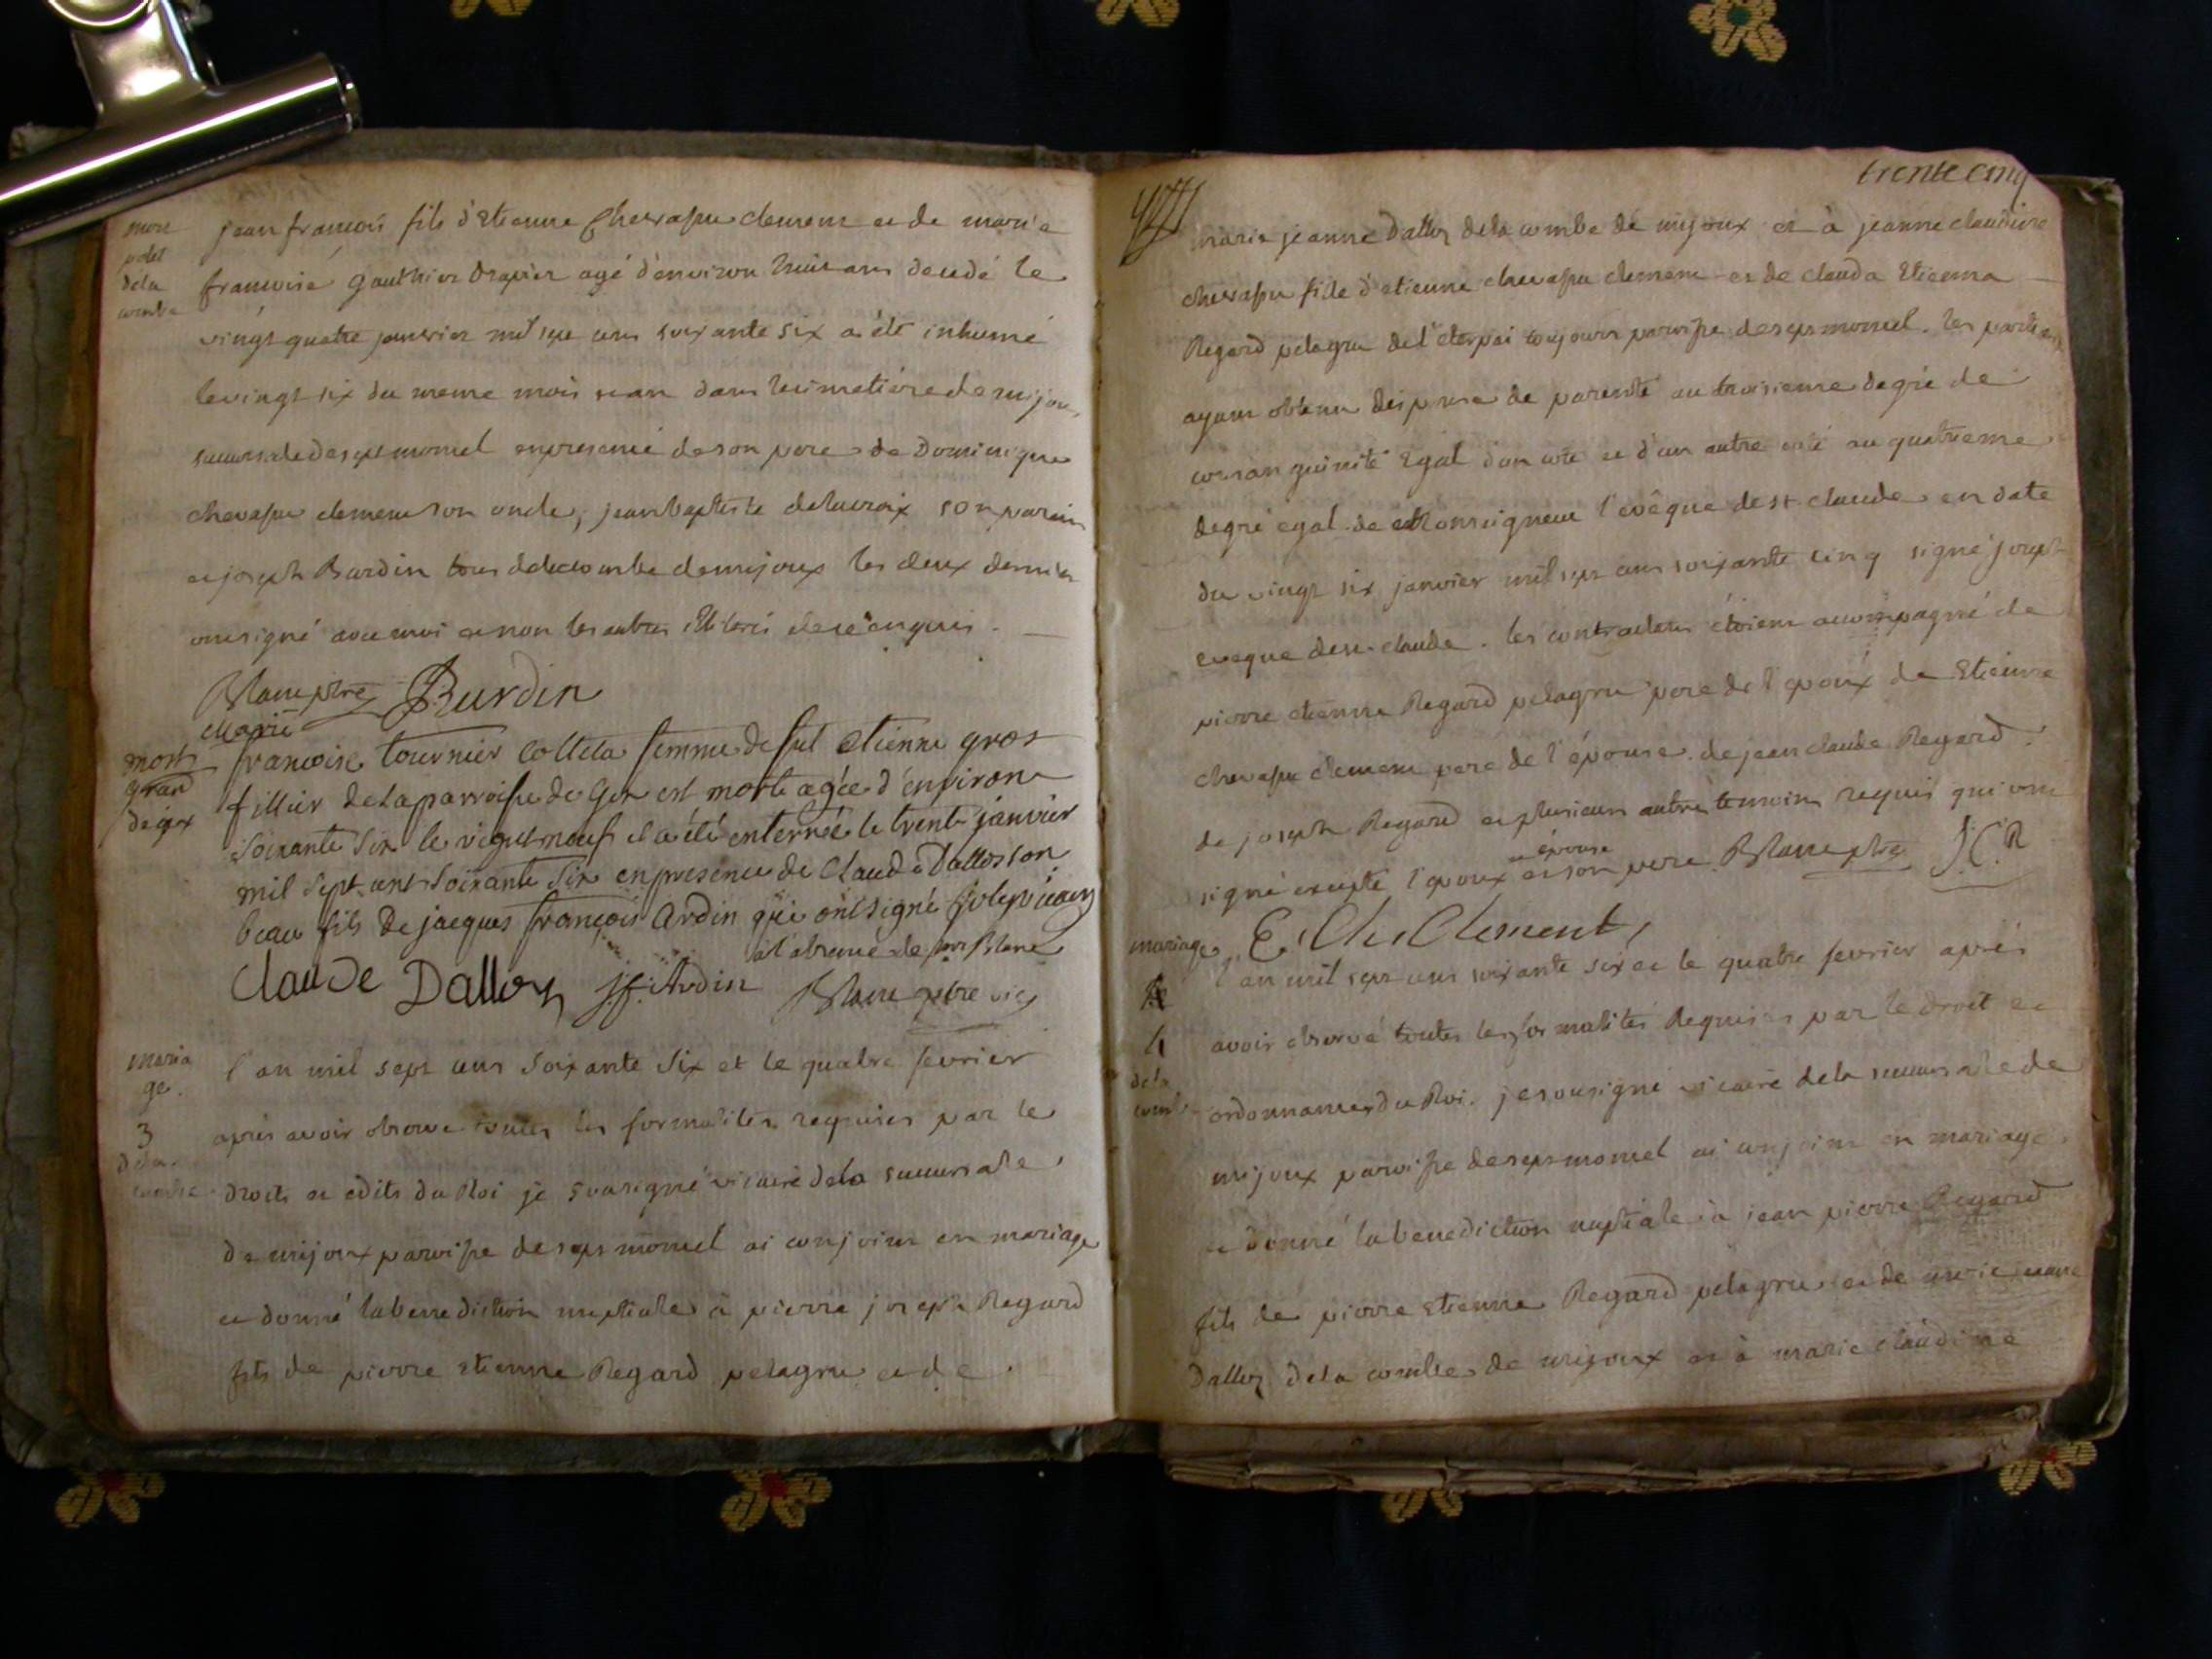 mort
petit
dela
combe
jean francois fils d'Etienne Chevassu clement et de maria
francoise Gauthier Drapier agé d'environ huit ans decedé le
vingt quatre janvier mil sept cens soixante six a été inhumé
le vingt six du meme mois et an dans le cimetiére de mijoux
succursale de septmoncel en presence de son pere de Dominique
chevassu clement son oncle, jean baptiste delacroix son parain
et joseph Burdin tous de la combe de mijoux les deux derniers
ont signé avec moi et non les autres illiterés de ce enquis.
Blanc ptre Burdin
marie
mort
grand
de gex
francoise tournier Colleta femme de fut etienne gros
fillier de la parroisse de Gex est morte agée d'environ
soixante six le vignt neuf et a été enterrée le trente janvier
mil sept cent soixante six en presence de Claude Dallos son
beau fils De jacques françois Ardin qui ont signé
à l'absence de Blanc
Claude Dalloz J. f. Ardin Blanc ptre vic
maria
ge.
3
dela
combe
l'an mil sept cens soixante six et le quatre fevrier
aprés avoir observé toutes les formalités requises par le
droits et edits du Roi je sousigné vicaire de la succursale
de mijoux paroisse de septmoncel ai conjoint en mariage
et donné la benediction nuptiale à pierre joseph Regard
fils de pierre etienne Regard pelagru et de
trente cinq
marie jeanne Dalloz de la combe de mijoux et à jeanne claudine
chevassu fille d'etienne chevassu clement et de clauda Etienna
Regard pelagru de l'eterpai toujours paroisse de septmoncel. les parties
ayant obtenu dispense de parenté au troisieme degré de
consanguinité Egal d'un coté et d'un autre coté au quatrieme
degré egal de Monseigneur l'evêque de st claude en date
du vingt six janvier mil sept cens soixante cinq signé joseph
eveque de st. claude. les contractans étoient accompagné de
pierre etienne Regard pelagru pere de l'epoux de Etienne
chevassu clement pere de l'épouse. de jean claude Regard.
de joseph Regard et plusieurs autres temoins requis qui ont
signé excepté l'epoux et épouse et son pere. Blanc ptre J. C. R
E. Che. Clement
mariage
4
dela
combe
l'an mil sept cens soixante six et le quatre fevrier aprés
avoir observé toutes les formalités Requises par le droit et
ordonnances du Roi. je sousigné vicaire de la succursale de
mijoux paroisse de septmoncel ai conjoint en mariage
et donné la benediction nuptiale à jean pierre Regard
fils de pierre etienne Regard pelagru et de marie jeanne
Dalloz de la combe de mijoux et à marie claudine